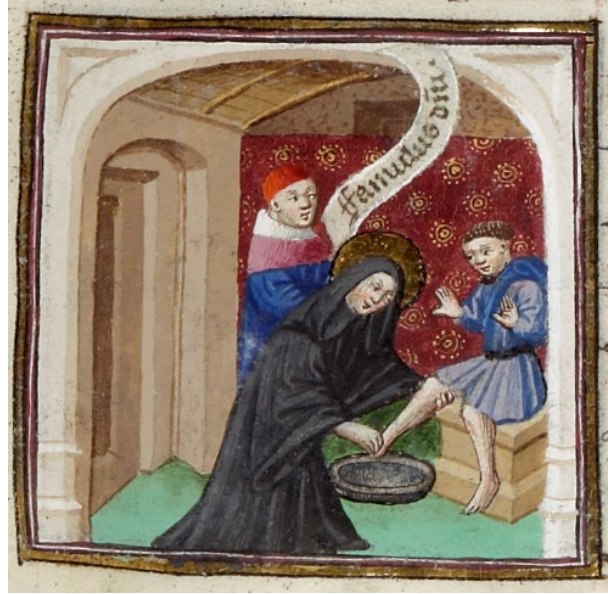 ffamulus dñi.